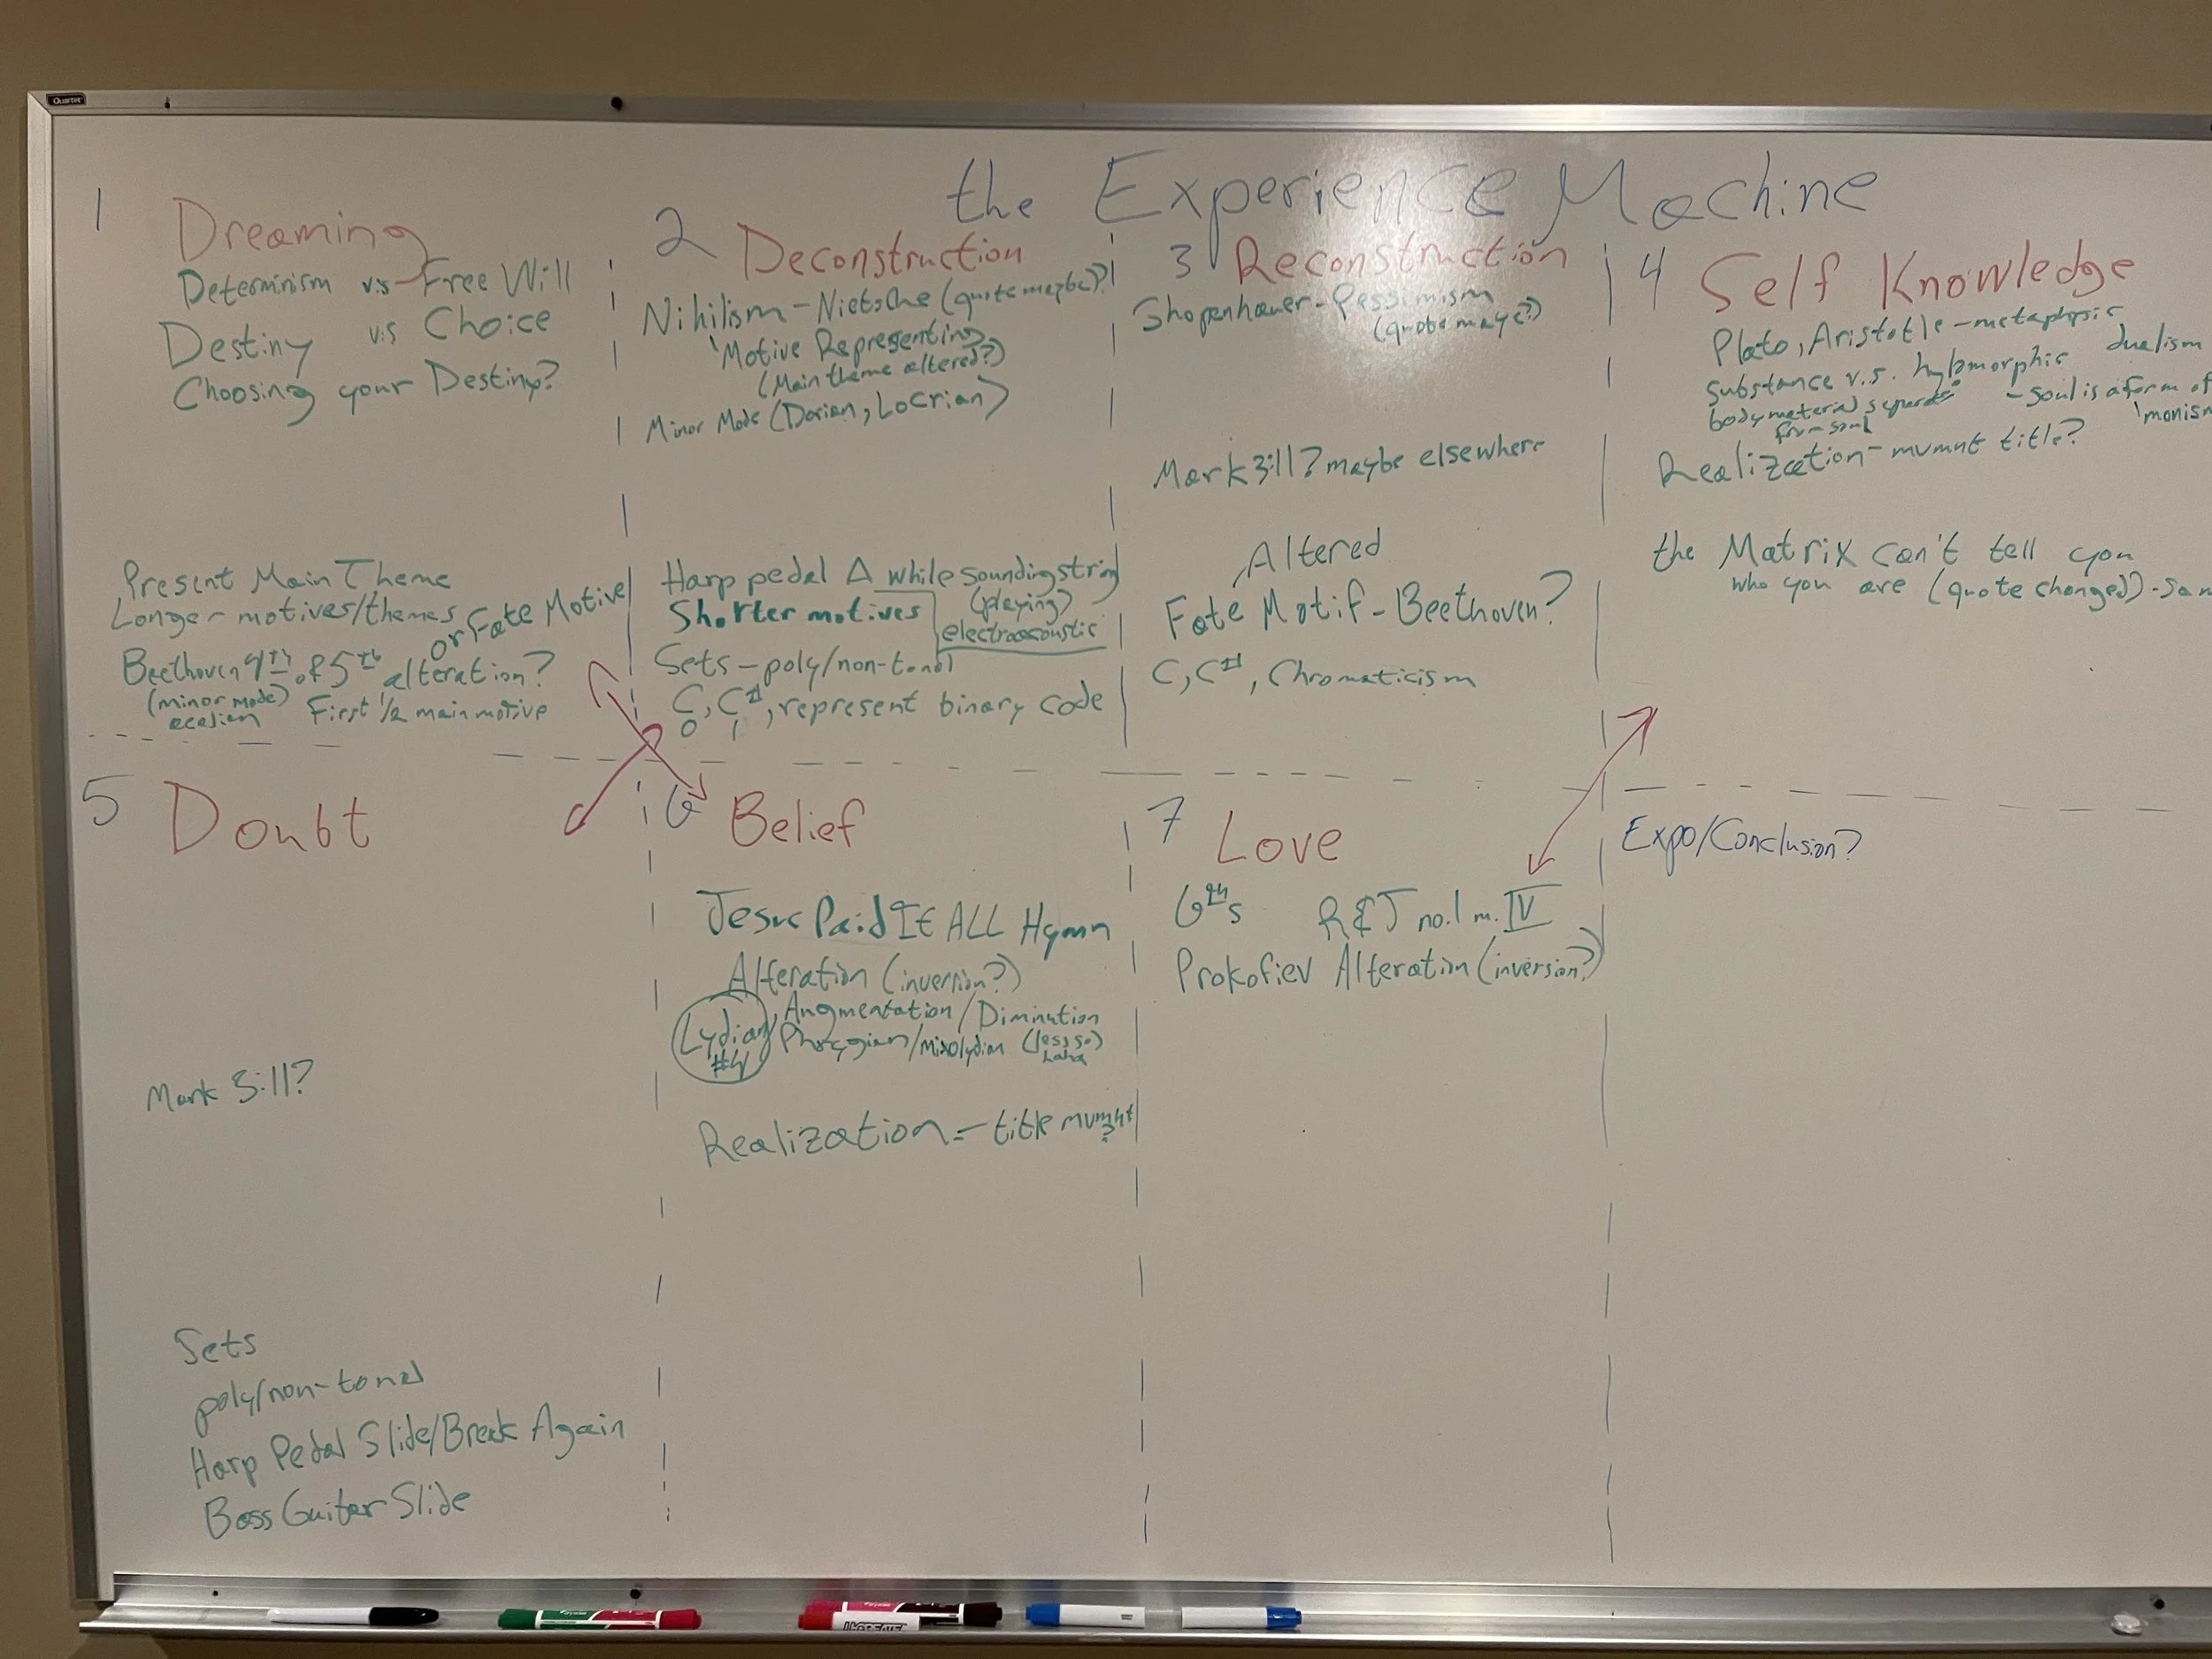 Quartet
the Experience Machine
1 Dreaming
Determinism v.s Free Will
Destiny v.s Choice
Choosing your Destiny?
Present Main Theme
Longer motives/themes
or Fate Motive
Beethoven 9th of 5th alteration?
(minor mode) First 1/2 main motive
2 Deconstruction
Nihilism - Nietsche (quote maybe?)
Motive Representing
(Main theme altered?)
Minor Mode (Dorian, Locrian)
Harp pedal Δ while sounding string
(playing)
Shorter motives
electroacoustic
Sets - poly/non-tonal
C, C#, represent binary code
0 1
3 Reconstruction
Shopenhauer - Pessimism
Mark 3:11? maybe elsewhere
Altered
Fate Motif - Beethoven?
C, C#, Chromaticism
4 Self Knowledge
Plato, Aristotle - metaphysic
Substance v.s. hylomorphic dualism
body material separate - soul is a form of
from soul 'monism
Realization - mvmnt title?
the Matrix can't tell you
who you are (quote changed)
5 Doubt
Mark 3:11?
Sets
poly/non-tonal
Harp Pedal Slide/Break Again
Bass Guitar Slide
6 Belief
Jesus Paid It ALL Hymn
Alteration (inversion?)
Lydian, Augmentation/Diminution
#4 Phrygian/mixolydian (less so)
haha
Realization - title mvmnt
?
7 Love
6ths R&J no.1 m. IV
Prokofiev Alteration (inversion?)
Expo/Conclusion?